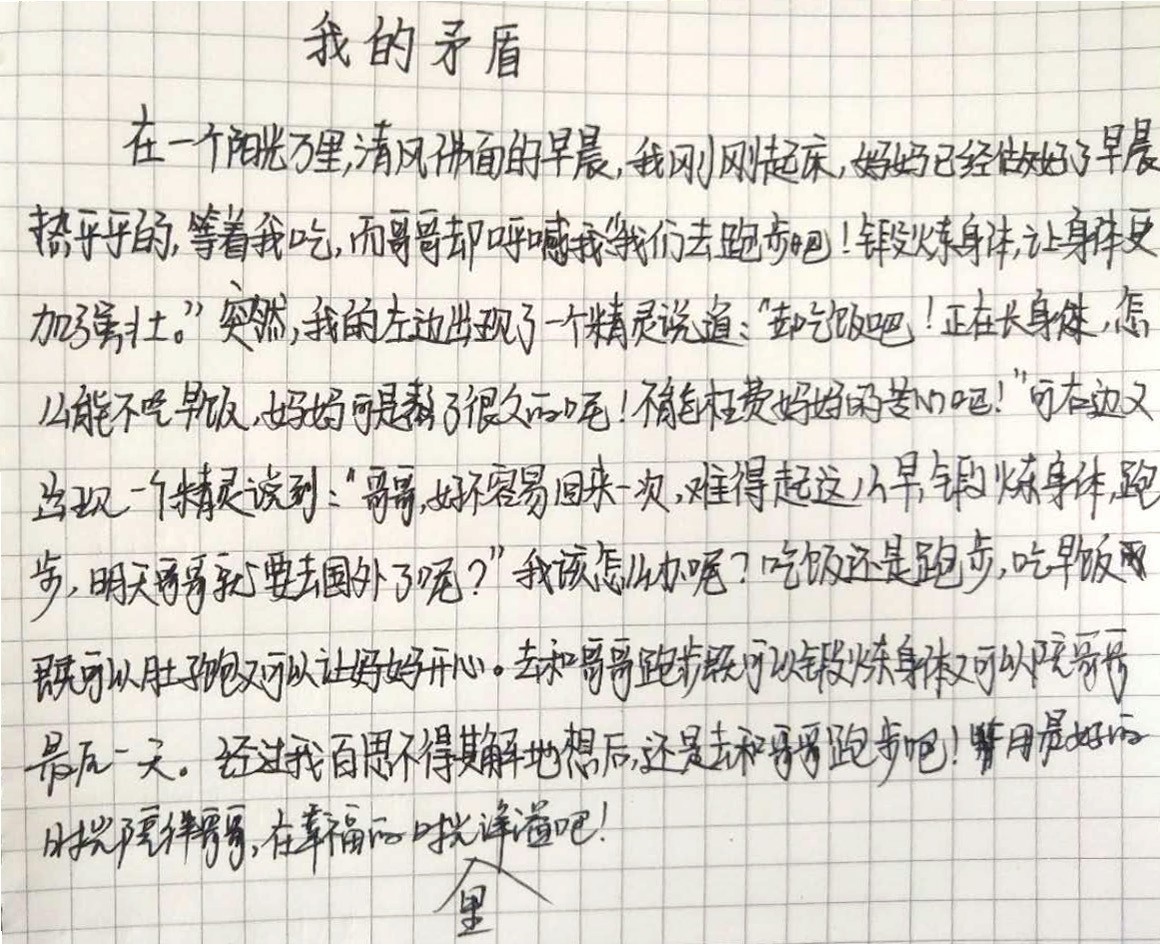 我的矛盾
在一个阳光万里,清风佛面的早晨,我刚刚起床,妈妈已经做好了早晨
热乎乎的,等着我吃,而哥哥却呼喊我“我们去跑步吧!锻炼身体,让身体更
加强壮。”突然,我的左边出现了一个精灵说道:“去吃饭吧!正在长身体,怎
么能不吃早饭,妈妈可是熬了很久的呢!不能枉费妈妈的苦心吧!”可右边又
出现一个精灵说到:“哥哥,好不容易回来一次,难得起这么早,锻炼身体,跑
步,明天哥哥就要去国外了呢?”我该怎么办呢?吃饭还是跑步,吃早饭
既可以肚子饱又可以让妈妈开心。去和哥哥跑步既可以锻炼身体又可以陪哥哥
最后一天。经过我百思不得其解地想后,还是去和哥哥跑步吧!用最好的
时光陪伴哥哥,在幸福的时光里洋溢吧!